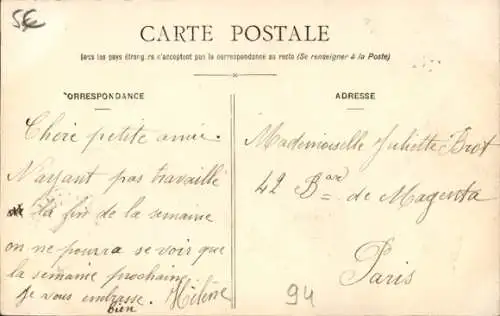 5€
CARTE POSTALE
Tous les pays étrangers n'acceptent pas la correspondance au recto (Se renseigner à la Poste)
CORRESPONDANCE
Chère petite amie.
N'ayant pas travaillé
la fin de la semaine
on ne pourra se voir que
la semaine prochaine
Je vous embrasse. Hélène
bien
ADRESSE
Mademoiselle Juliette Brot
42 Bard de Magenta
Paris
94